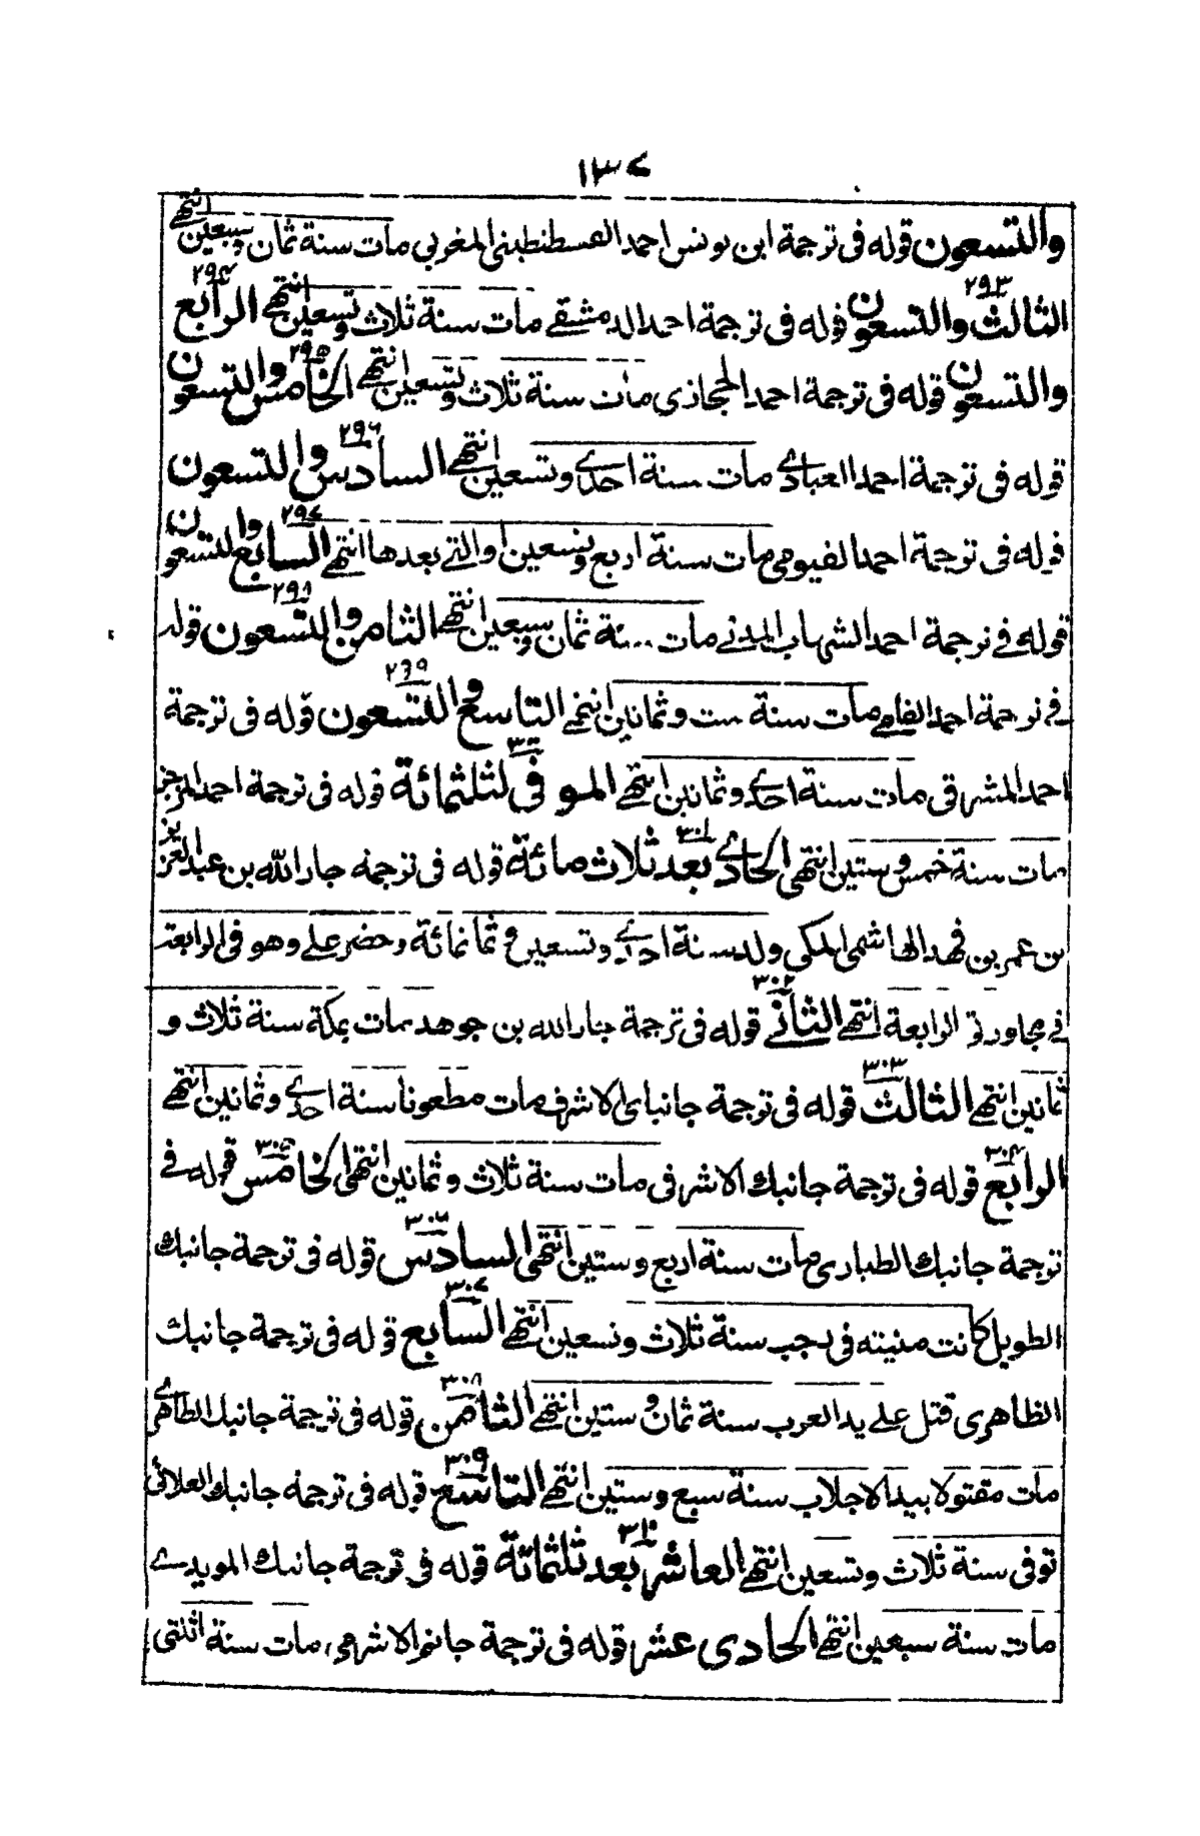 ١٣٧
والتسعون قوله فى ترجمة ابن يونس احمد القسطنطينى المغربي مات سنة ثمان وسبعين انتهى
٢٩٣ ٢٩٤
الثالث والتسعون قوله فى ترجمة احمد الدمشقے مات سنة ثلاث وتسعين انتهے الرابع
٢٩٥
والتسعون قوله فى ترجمة احمد الحجازى مات سنة ثلاث وتسعين انتهے الخامس والتسعون
٢٩٦
قوله فى ترجمة احمد العبادے مات سنة احدے وتسعين انتهے السادس والتسعون
٢٩٧
قوله فى ترجمة احمد الفيومى مات سنة اربع وتسعين او التے بعدها انتهے السابع والتسعون
٢٩٨
قوله فے ترجمة احمد الشهاب المدنے مات سنة ثمان وسبعين انتهے الثامن والتسعون قوله
٢٩٩
فے ترجمة احمد الفامے مات سنة ست وثمانين انتهے التاسع والتسعون قوله فى ترجمة
٣٠٠
احمد المشرقى مات سنة احدے وثمانين انتهے الموفى لثلثمائة قوله فى ترجمة احمد
٣٠١
مات سنة خمس وستين انتهى الحادے بعد ثلاث مائة قوله فى ترجمة جار الله بن عبد العزيز
بن عمر بن فهد الهاشمى المكى ولد سنة احدے وتسعين وثمانمائة وحضر على وهو فى الرابعة
٣٠٢
فے مجاورتى الرابعة انتهے الثانے قوله فى ترجمة جار الله بن جوهد مات بمكة سنة ثلاث و
٣٠٣
ثمانين انتهے الثالث قوله فى ترجمة جانباى الاشرف مات مطعونا سنة احدے وثمانين انتهے
٣٠٤ ٣٠٥
الرابع قوله فى ترجمة جانبك الاشرفى مات سنة ثلاث وثمانين انتهى الخامس قوله فے
٣٠٦
ترجمة جانبك الطبارى مات سنة اربع وستين انتهى السادس قوله فى ترجمة جانبك
٣٠٧
الطويل كانت منيته فى رجب سنة ثلاث وتسعين انتهے السابع قوله فى ترجمة جانبك
٣٠٨
الظاهرى قتل علے يد العرب سنة ثمان وستين انتهے الثامن قوله فى ترجمة جانبك الظاهرے
٣٠٩
مات مقتولا بيد الاجلاب سنة سبع وستين انتهے التاسع قوله فى ترجمة جانبك العلائى
٣١٠
توفى سنة ثلاث وتسعين انتهے العاشر بعد ثلثمائة قوله فى ترجمة جانبك المويدے
مات سنة سبعين انتهے الحادى عشر قوله فى ترجمة جانم الاشرفى مات سنة اثنتى